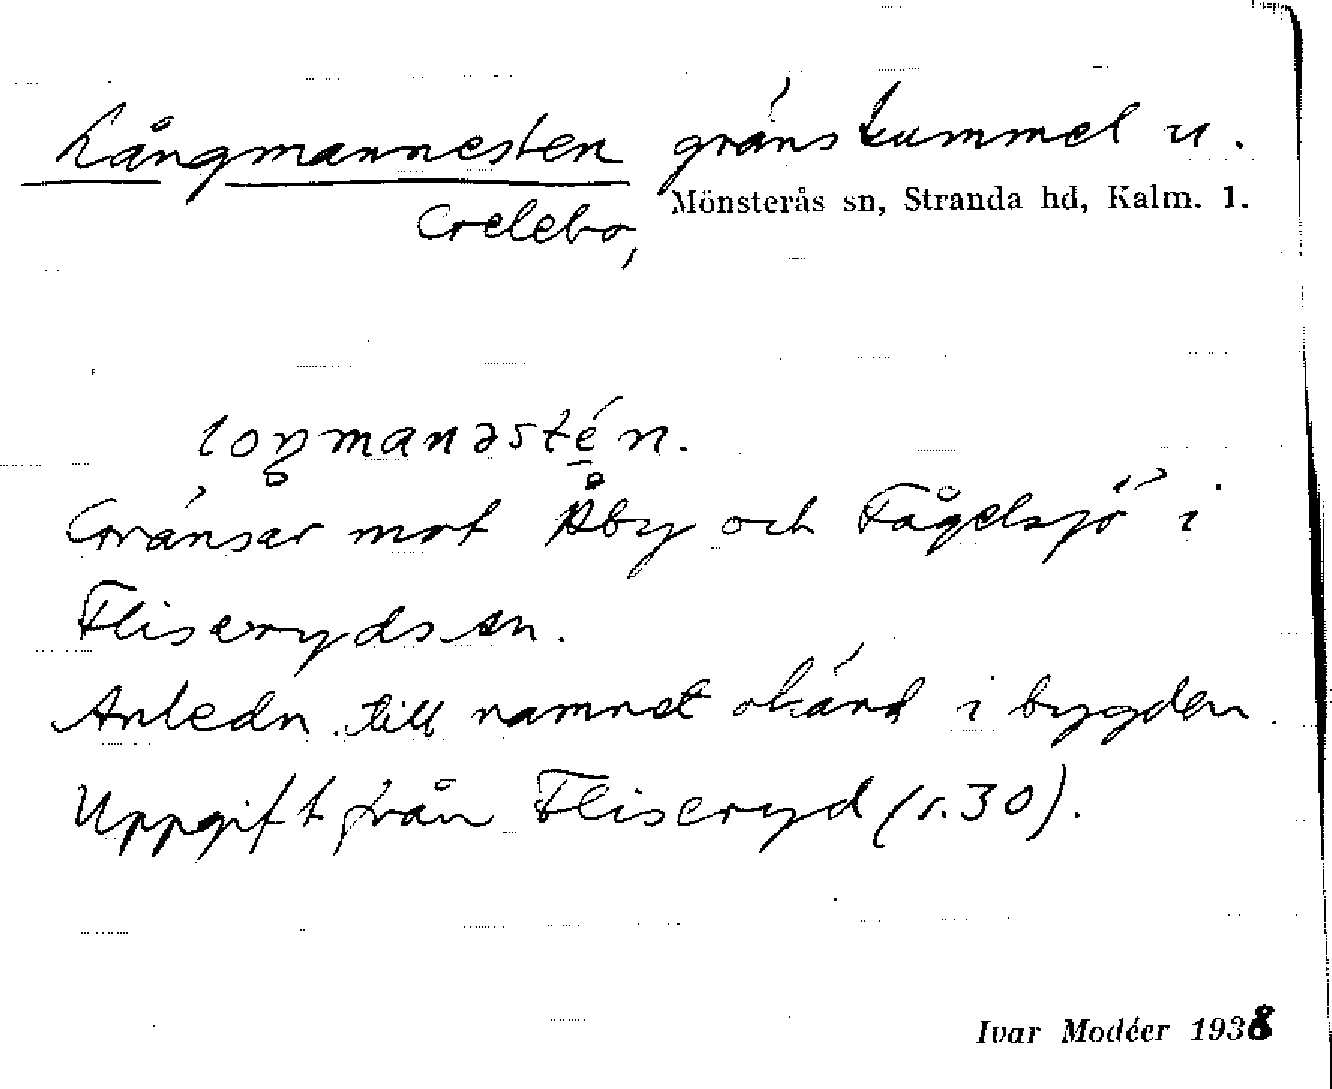 Långmannesten gränskummel u.
Mönsterås sn, Stranda hd, Kalm. l.
Crelebo,
loŋ̥manəstén.
Gränsar mot Åby och Fågelsjö i
Fliseryds sn.
Anledn. till namnet okänd i bygden.
Uppgift från Fliseryd (s. 30).
Ivar Modéer 1938